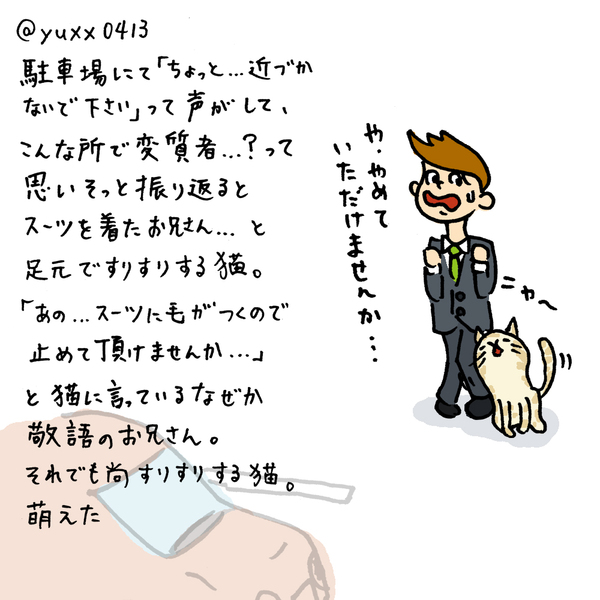 @yuxx0413
駐車場にて「ちょっと…近づか
ないで下さい」って声がして、
こんな所で変質者…?って
思いそっと振り返ると
スーツを着たお兄さん…と
足元ですりすりする猫。
「あの…スーツに毛がつくので
止めて頂けませんか…」
と猫に言っているなぜか
敬語のお兄さん。
それでも尚すりすりする猫。
萌えた
や・やめて
いただけませんか・・・
ニャ〜